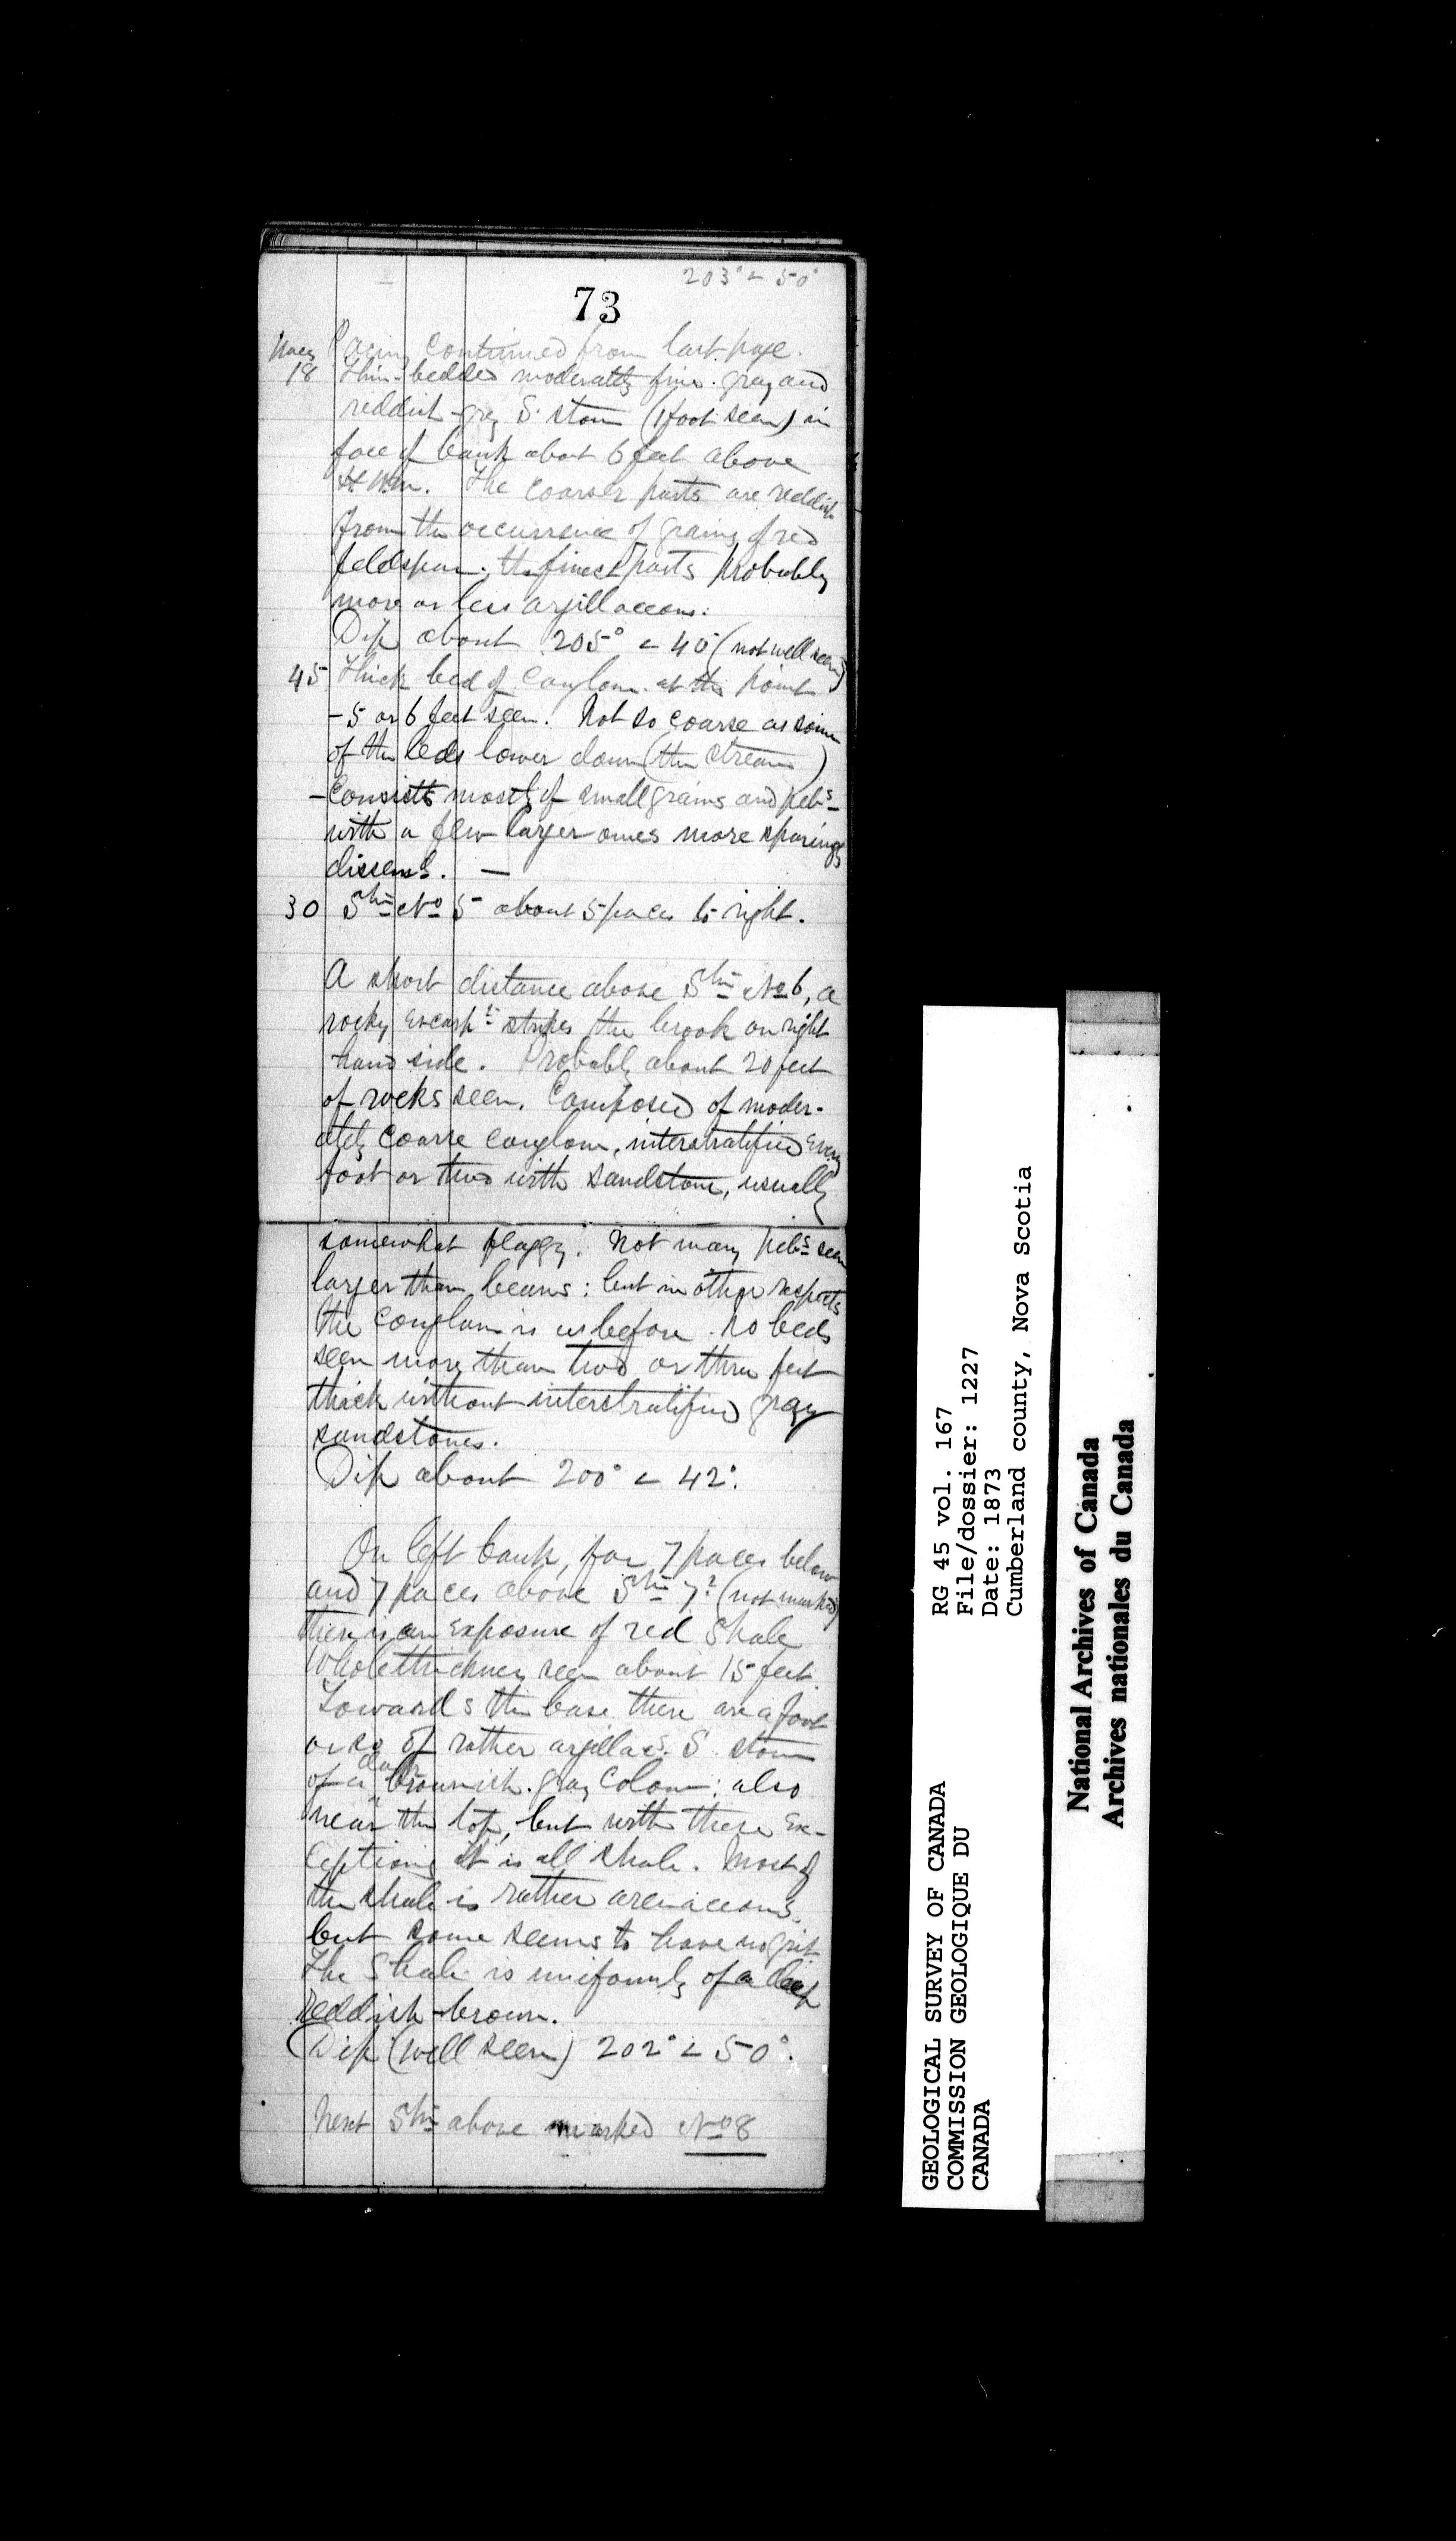 203° ∠ 50°
73
Paces Pacing continued from last page.
18 Thin-bedded moderately fine gray and
reddish-gray S. stone (1 foot seen) in
face of bank about 6 feet above
H.W.m. The coarser parts are reddish
from the occurrence of grains of red
feldspar. the finer parts probably
more or less argillaceous.
Dip about 205° ∠ 40° (not well seen)
45 Thick bed of conglom. at this point
- 5 or 6 feet seen. Not so coarse as some
of the beds lower down (the stream)
- Consists mostly of small grains and pebs
with a few larger ones more sparingly
dissemd. —
30 Stn No 5 about 5 paces to right.
A short distance above Stn No 6, a
rocky escarpt strikes the brook on right
hand side. Probably about 20 feet
of rocks seen. Composed of moder-
ately coarse conglom. interstratified every
foot or two with sandstone, usually
somewhat flaggy. Not many pebs seen
larger than beans: but in other respects
the conglom is as before. No beds
seen more than two or three feet
thick without interstratified gray
sandstones.
Dip about 200° ∠ 42°.
On left bank, for 7 paces below
and 7 paces above Stn 7? (not marked)
there is an exposure of red shale
Whole thickness seen about 15 feet.
Towards the base there are a foot
or so of rather argillas. S. stone
of a dark brownish-gray colour: also
near the top, but with these ex-
ceptions it is all shale. Most of
the shale is rather arenaceous,
but some seems to have no grit
The Shale is uniformly of a deep
reddish-brown.
Dip (well seen) 202° ∠ 50°.
Next Stn above marked No 8
RG 45 vol. 167
File/dossier: 1227
Date: 1873
Cumberland county, Nova Scotia
GEOLOGICAL SURVEY OF CANADA
COMMISSION GEOLOGIQUE DU
CANADA
National Archives of Canada
Archives nationales du Canada